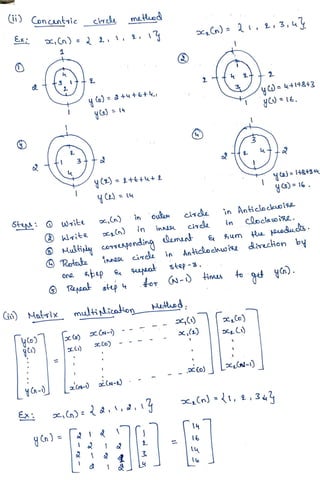 (ii) Concentric circle method
Ex: x₁(n) = { 2, 1, 2, 1 }   x₂(n) = { 1, 2, 3, 4 }
①
y(0) = 2+4+6+4
y(0) = 14
②
y(1) = 4+1+8+3
y(1) = 16.
③
y(2) = 14
④
y(3) = 16.
Steps: ① Write x₁(n) in outer circle in Anticlockwise
② Write x₂(n) in inner circle in Clockwise.
③ Multiply corresponding element & sum the products.
④ Rotate inner circle in Anticlockwise direction by
one step & repeat step-3.
⑤ Repeat step 4 for (N-1) times to get y(n).
(iii) Matrix multiplication Method:
y(0) x(0) x(N-1) - - - - - x₁(1) x₂(0)
y(1) x(1) x(0) - - - - - x₁(2) x₂(1)
y(N-1) x(N-1) x(N-2) - - - - - x(0) x₂(N-1)
Ex: x₁(n) = { 2, 1, 2, 1 }   x₂(n) = { 1, 2, 3 4 }
y(n) = [ 2 1 2 1 ] [ 1 ] = [ 14 ]
1 2 1 2   2   16
2 1 2 1   3   14
1 2 1 2   4   16